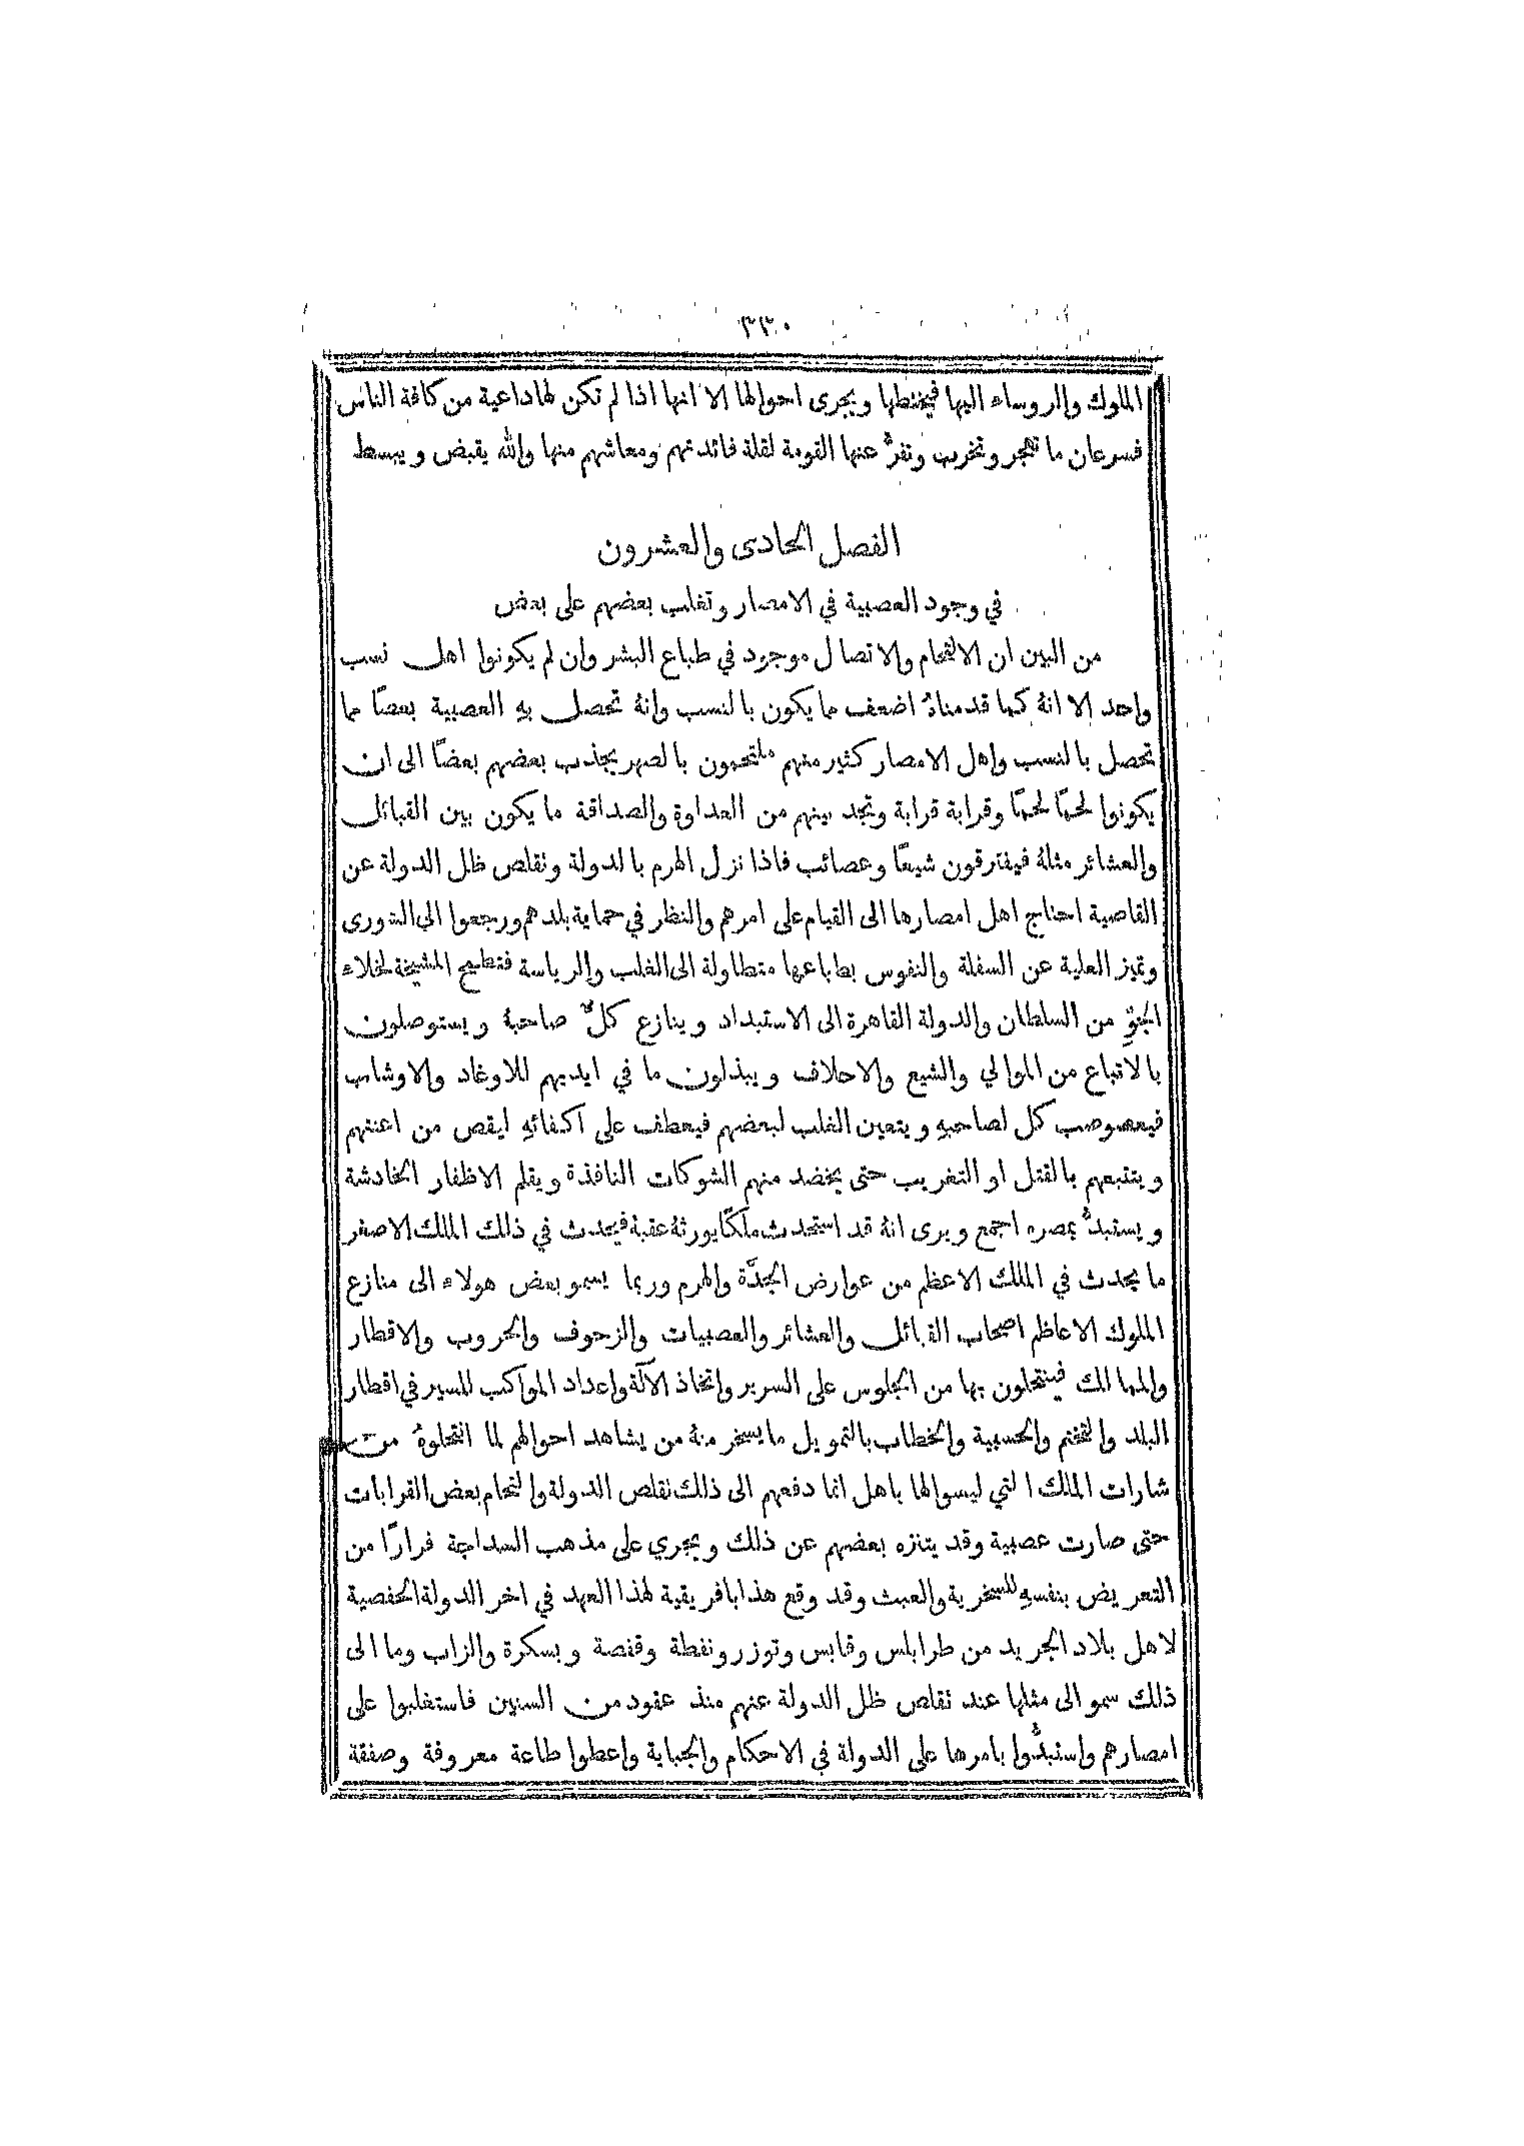 ٣٣٠
الملوك والروساء اليها فيختطها ويجرى احوالها الا انها اذا لم تكن لها داعية من كافة الناس
فسرعان ما تهجر وتخرب وتفرُّ عنها القومة لقلة فائدتهم ومعاشهم منها والله يقبض ويبسط
الفصل الحادى والعشرون
في وجود العصبية في الامصار وتغلب بعضهم على بعض
من البين ان الالتحام والاتصال موجود في طباع البشر وان لم يكونوا اهل نسب
واحد الا انهُ كما قدمناهُ اضعف مما يكون بالنسب وانهُ تحصل بهِ العصبية بعضًا مما
تحصل بالنسب واهل الامصار كثير منهم ملتحمون بالصهر يجذب بعضهم بعضًا الى ان
يكونوا لحمًا لحمًا وقرابة قرابة وتجد بينهم من العداوة والصداقة ما يكون بين القبائل
والعشائر مثلهُ فيفترقون شيعًا وعصائب فاذا نزل الهرم بالدولة وتقلص ظل الدولة عن
القاصية احتاج اهل امصارها الى القيام على امرهم والنظر في حماية بلدهم ورجعوا الى الشورى
وتميز العلية عن السفلة والنفوس بطباعها متطاولة الى الغلب والرياسة فتطمح المشيخة لخلاء
الجوِّ من السلطان والدولة القاهرة الى الاستبداد وينازع كلٌّ صاحبهُ ويستوصلون
بالاتباع من الموالي والشيع والاحلاف ويبذلون ما في ايديهم للاوغاد والاوشاب
فيعصوصب كل لصاحبهِ ويتعين الغلب لبعضهم فيعطف على اكفائهِ ليقص من اعنتهم
ويتتبعهم بالقتل او التغريب حتى يخضد منهم الشوكات النافذة ويقلم الاظفار الخادشة
ويستبدُّ بمصره اجمع ويرى انهُ قد استحدث ملكًا يورثهُ عقبهُ فيحدث في ذلك الملك الاصغر
ما يحدث في الملك الاعظم من عوارض الجدَّة والهرم وربما يسمو بعض هولاء الى منازع
الملوك الاعاظم اصحاب القبائل والعشائر والعصبيات والزحوف والحروب والاقطار
والممالك فينتحلون بها من الجلوس على السرير واتخاذ الآلة واعداد المواكب للسير في اقطار
البلد والتختم والحسبية والخطاب بالتمويل ما يسخر منهُ من يشاهد احوالهم لما انتحلوهُ من
شارات الملك التي ليسوا لها باهل انما دفعهم الى ذلك تقلص الدولة والتحام بعض القرابات
حتى صارت عصبية وقد يتنزه بعضهم عن ذلك ويجري على مذهب السذاجة فرارًا من
التعريض بنفسهِ للسخرية والعبث وقد وقع هذا بافريقية لهذا العهد في اخر الدولة الحفصية
لاهل بلاد الجريد من طرابلس وقابس وتوزر ونفطة وقفصة وبسكرة والزاب وما الى
ذلك سموا الى مثلها عند تقلص ظل الدولة عنهم منذ عقود من السنين فاستغلبوا على
امصارهم واستبدُّوا بامرها على الدولة في الاحكام والجباية واعطوا طاعة معروفة وصفقة